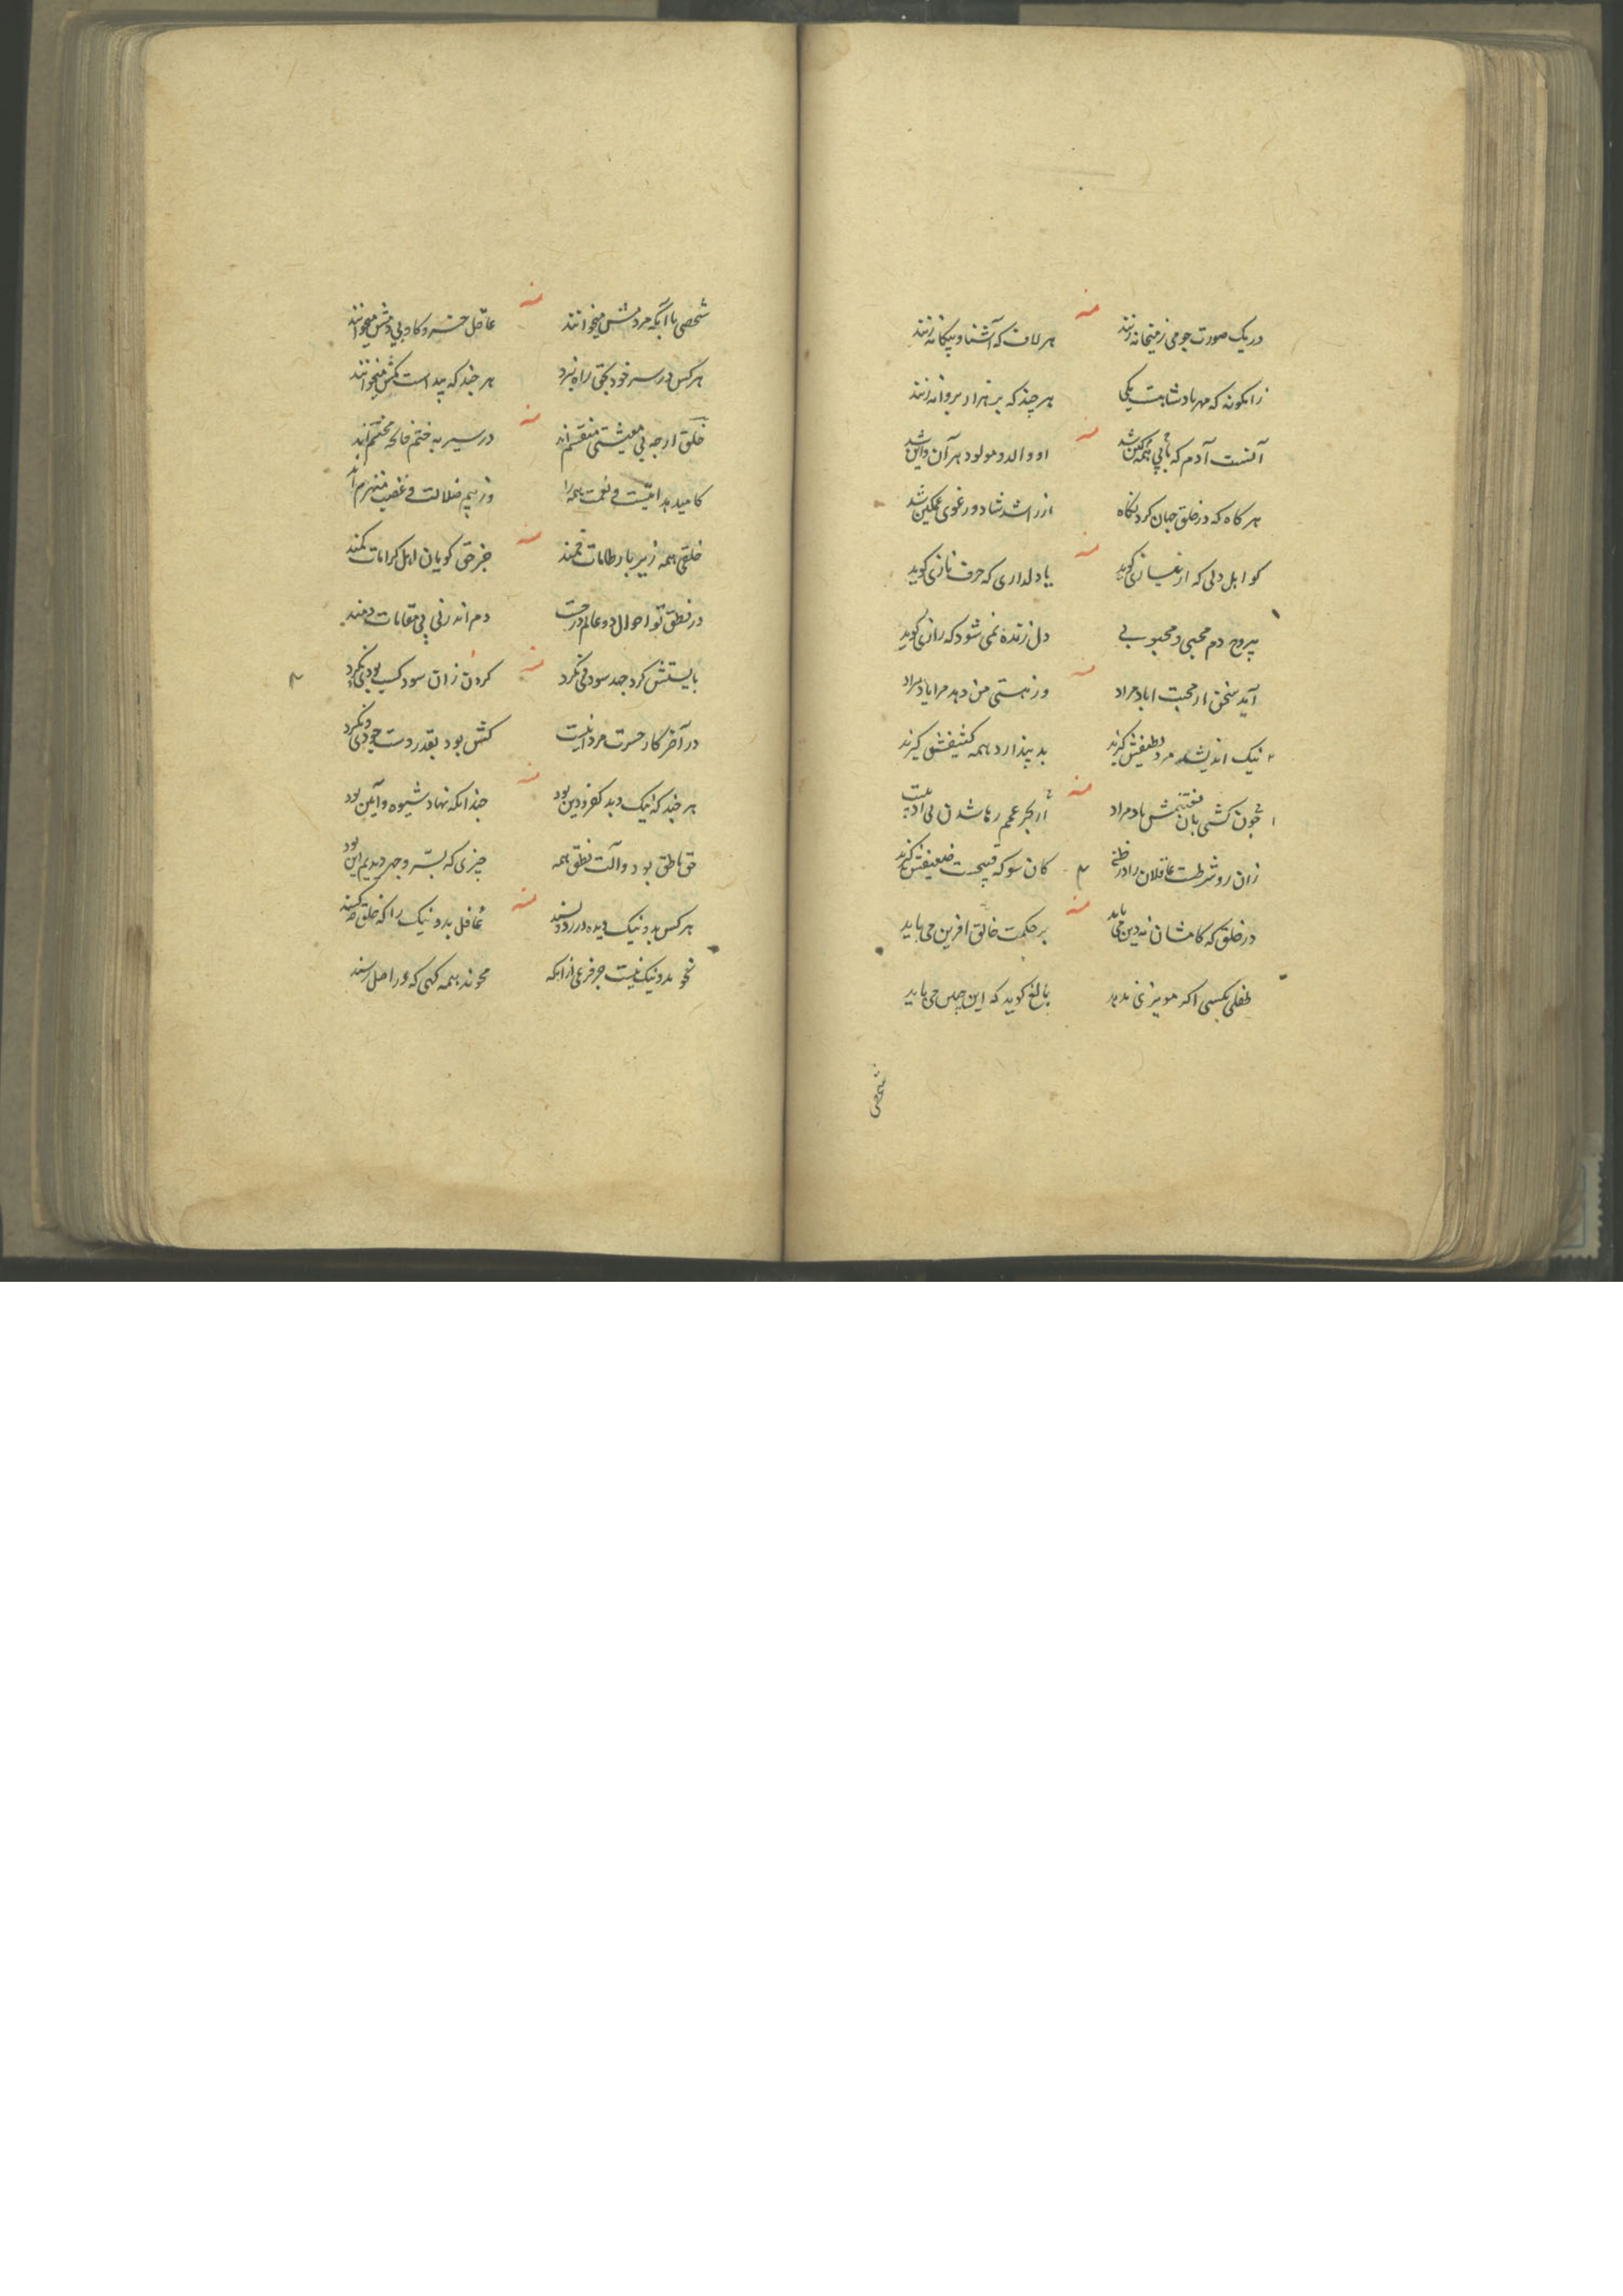 منه
در یک صورت جو می ز میخانه زنند هر لاف که آشنا و بیکانه زنند
زانکونه که مهر پادشاهیست یکی هر چند که بر هزار پروانه زنند
منه
آنست آدم که با همه کین شد او والد و مولود هر آن و این شد
هر کاه که در خلق جهان کرد نکاه از راشد شاد و ز غوی غمکین شد
منه
کو اهل دلی که از نیازی کوید یا دلداری که حرف نازی کوید
بی روح دم محبی و محبوبی دل زنده نمی شود که رازی کوید
منه
آید سخن از محبت اباد مراد وز هستی من دهد مرا یاد مراد
نیک اندیشد مرد لطیفش کیرند بد پندارد همه کثیفش کیرند
منه
چون کشتی بان مغتنمش باد مراد از بحر غمم رها شدن
زان رو شرطست عاقلان را در ظن کان سو که قبیحست ضعیفش کیرند
منه
در خلق که کامشان ز دین می باید بر حکمت خالق افرین می باید
طفلی بکسی اکر مویزی ندهد بالغ کوید که این چنین می باید
شخصی
منه
شخصی با آنکه مردمش میخوانند عاقل خر و کاو بی دمش میخوانند
هر کس در سر خود بحق راه نبرد هر چند که پیداست کمش میخوانند
منه
خلق ارچه بی معیشتی منقسم اند در سیر به ختم فاتحه مختتم اند
کامید هدایتست و نعمت همه را وز بیم ضلالت و غضب منهزم اند
منه
خلقی همه زیر بار طامات خمند جز حق کویان اهل کرامات کمند
در نطق تو احوال دو عالم درجست دم اندر نی پی مقامات دمند
منه
بایستش کرد جهد سودی نکرد کردن زان سود کسب بودی نکرد
در آخر کار حسرت مرد اینست کش بود بقدر دست جودی نکرد
منه
هر چند که نیک و بد کفر و دین بود چندانکه نهاد شیوه و آیین بود
حق ناطق بود و آلت نطق همه چیزی که بسر و جهر دیدیم این بود
منه
هر کس بد و نیک دیده در رد و پسند غافل بد و نیک را که خلق
نحو بد و نیک نیست جز فرعی ازانکه محوند همه کهی که در اصل رسند